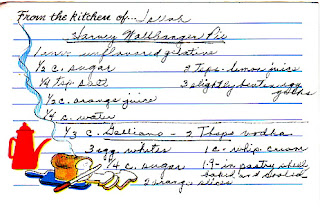 From the kitchen of...
Harvey Wallbanger Pie
1 env. unflavored gelatine
1/2 c. sugar 2 Tsps. lemon juice
1/4 tsp salt 3 slightly beaten egg yolks
1/2 c. orange juice
1/4 c. water
1/3 c. Galliano - 2 Tbsps vodka
3 egg whites 1 c. whip cream
1/4 c. sugar 1-9-in pastry shell
baked and cooled
2 orange slices